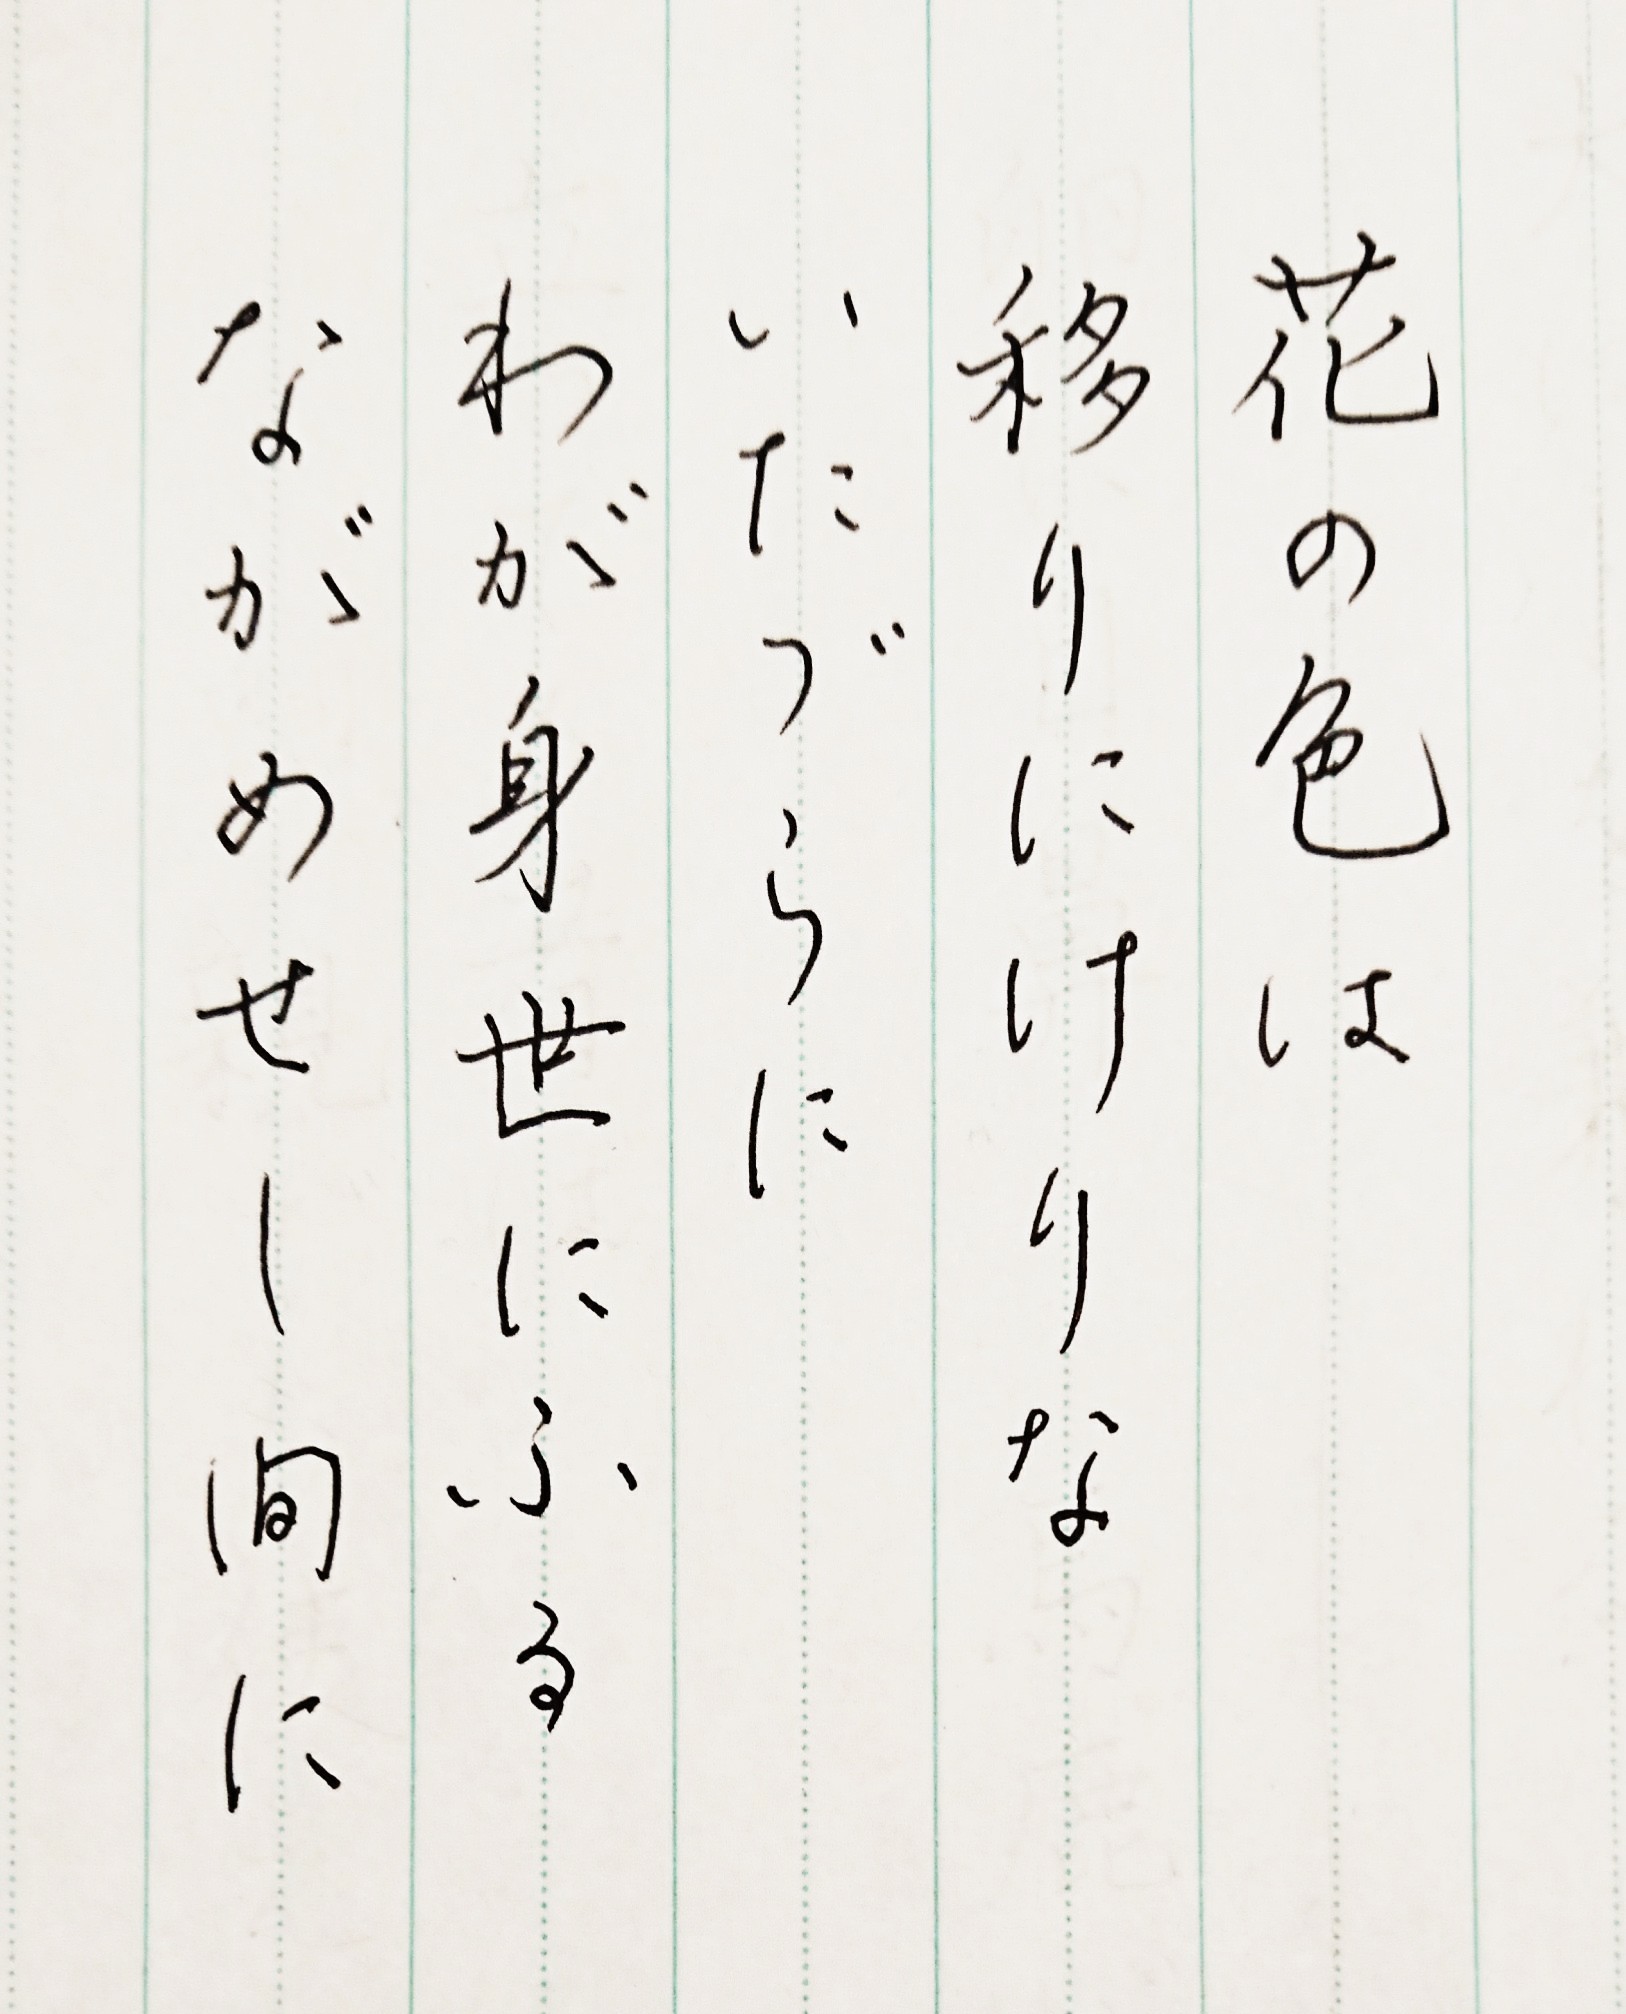 花の色は
移りにけりな
いたづらに
わが身世にふる
ながめせし間に